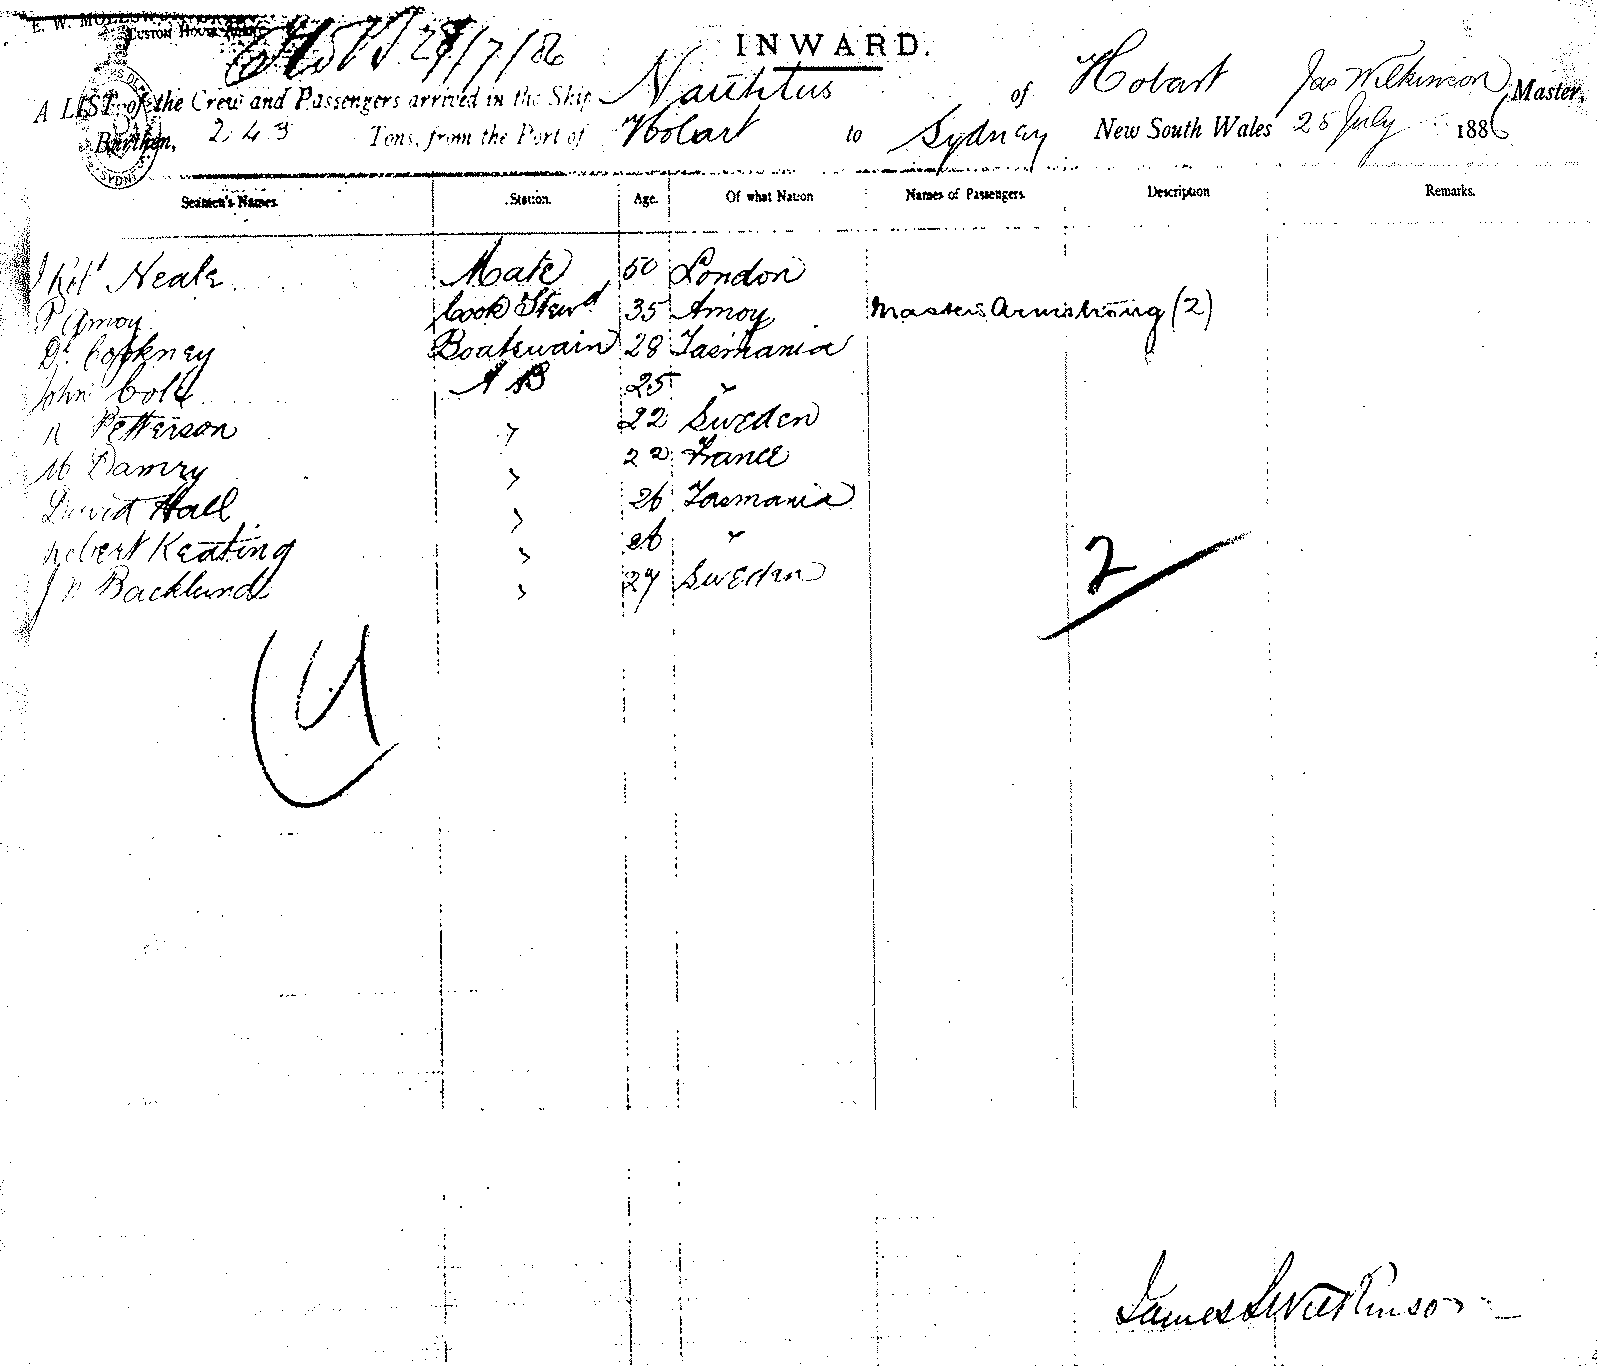 E. W. MOLESWORTH
CUSTOM HOUSE
28/7/86
INWARD.
A LIST of the Crew and Passengers arrived in the Ship Nautilus of Hobart Jas Wilkinson, Master,
Burthen, 243 Tons, from the Port of Hobart to Sydney New South Wales 28 July 1886
Seamen's Names. Station. Age. Of what Nation Names of Passengers. Description Remarks.
Robt Neale Mate 50 London
P Amoy Cook Stewd 35 Amoy Masters Armstrong (2)
Boatswain 28 Tasmania
John Cole A B 25 "
Petterson " 22 Sweden
M Damry " 22 France
David Hall " 26 Tasmania
Robert Keating " 26 "
J Backlund " 27 Sweden
2
James Wilkinson